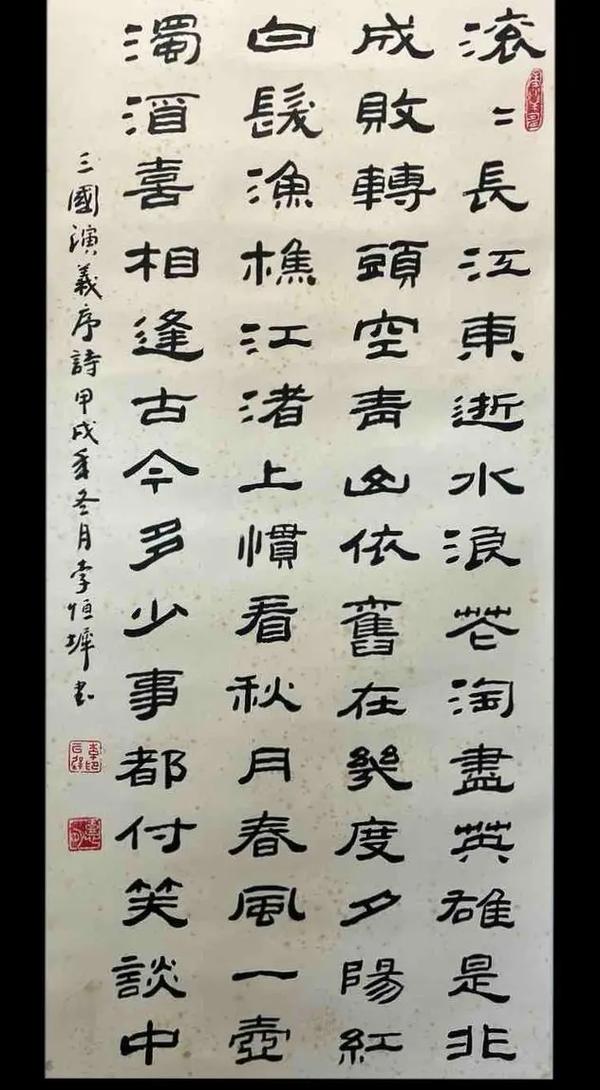 滚〻長江東逝水浪花淘盡英雄是非
成敗轉頭空青山依舊在幾度夕陽紅
白髮漁樵江渚上慣看秋月春風一壺
濁酒喜相逢古今多少事都付笑談中
三國演義序詩甲戌年冬月李恒墀書